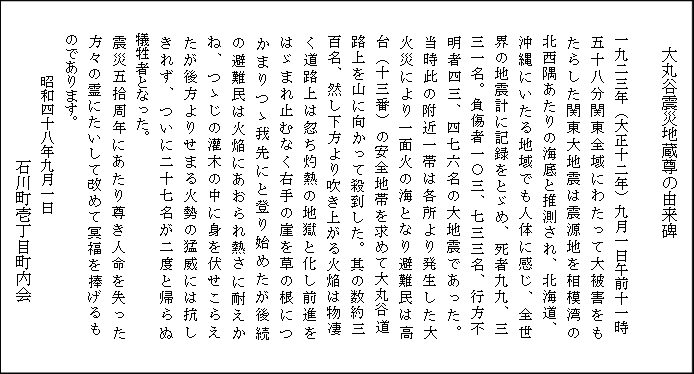 大丸谷震災地蔵尊の由来碑
一九二三年（大正十二年）九月一日午前十一時
五十八分関東全域にわたって大被害をも
たらした関東大地震は震源地を相模湾の
北西隅あたりの海底と推測され、北海道、
沖縄にいたる地域でも人体に感じ、全世
界の地震計に記録をとゞめ、死者九九、三
三一名。負傷者一〇三、七三三名、行方不
明者四三、四七六名の大地震であった。
当時此の附近一帯は各所より発生した大
火災により一面火の海となり避難民は高
台（十三番）の安全地帯を求めて大丸谷道
路上を山に向かって殺到した。其の数約三
百名、然し下方より吹き上がる火焔は物凄
く道路上は忽ち灼熱の地獄と化し前進を
はゞまれ止むなく右手の崖を草の根につ
かまりつゝ我先にと登り始めたが後続
の避難民は火焔にあおられ熱さに耐えか
ね、つゝじの灌木の中に身を伏せこらえ
たが後方よりせまる火勢の猛威には抗し
きれず、ついに二十七名が二度と帰らぬ
犠牲者となった。
震災五拾周年にあたり尊き人命を失った
方々の霊にたいして改めて冥福を捧げるも
のであります。
昭和四十八年九月一日
石川町壱丁目町内会